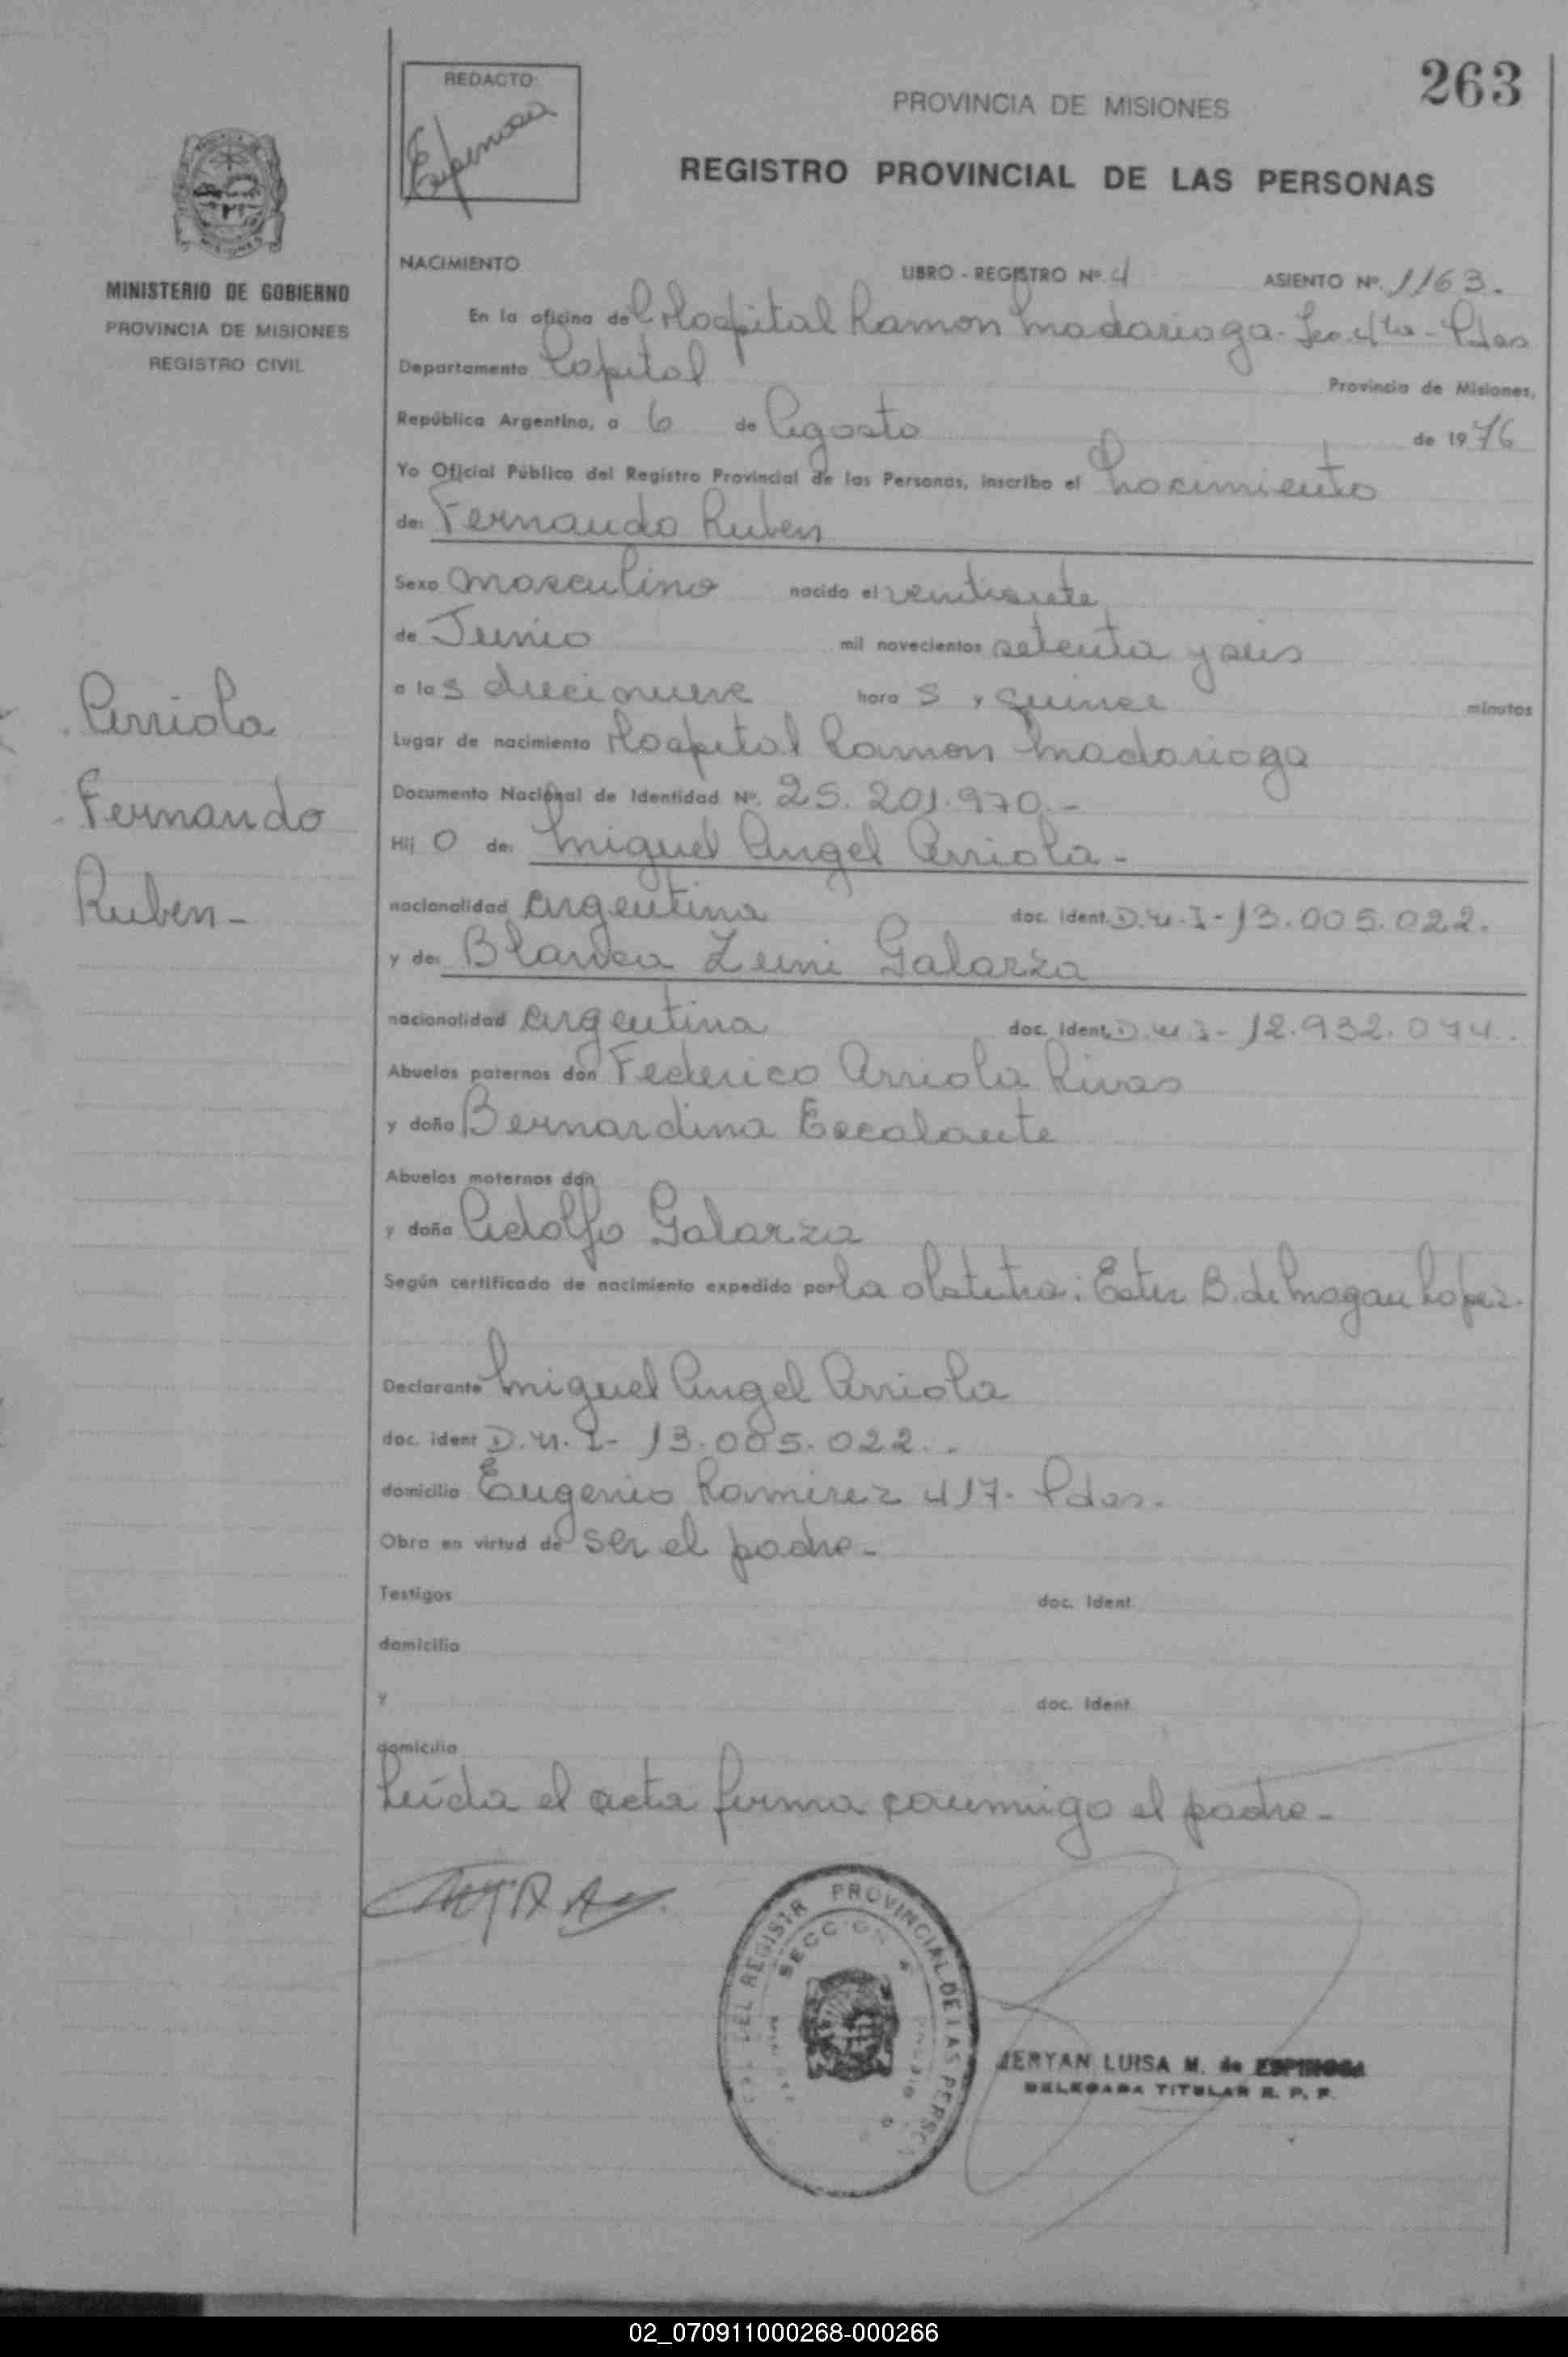 263
REDACTO
Espinosa
PROVINCIA DE MISIONES
REGISTRO PROVINCIAL DE LAS PERSONAS
MINISTERIO DE GOBIERNO
PROVINCIA DE MISIONES
REGISTRO CIVIL
Arriola
Fernando
Ruben-
NACIMIENTO LIBRO - REGISTRO Nº. 4 ASIENTO Nº. 1163.
En la oficina del Hospital Ramon Madariaga - Sec. 4ta - Pdas
Departamento Capital Provincia de Misiones,
República Argentina, a 6 de Agosto de 1976
Yo Oficial Público del Registro Provincial de las Personas, inscribo el Nacimiento
de: Fernando Ruben
Sexo Masculino nacido el veintisiete
de Junio mil novecientos setenta y seis
a las diecinueve horas y quince minutos
Lugar de nacimiento Hospital Ramon Madariaga
Documento Nacional de Identidad Nº. 25.201.970.-
Hijo de: Miguel Angel Arriola-
nacionalidad argentina doc. ident. D.N.I- 13.005.022.
y de: Blanca Zuni Galarza
nacionalidad argentina doc. ident. D.N.I- 12.932.074.
Abuelos paternos don Federico Arriola Rivas
y doña Bernardina Escalante
Abuelos maternos don
y doña Adolfo Galarza
Según certificado de nacimiento expedido por la obstetra: Ester B. de Magan Lopez.
Declarante Miguel Angel Arriola
doc. ident D.N.I- 13.005.022.
domicilio Eugenio Ramirez 417- Pdas.
Obra en virtud de ser el padre-
Testigos doc. ident.
domicilio
y doc. ident.
domicilio
Leída el acta firma conmigo el padre-
DEL REGISTR PROVINCIAL DE LAS PERSO
SECCION 4
MISIONES
LUISA M. de ESPINOSA
DELEGADA TITULAR R. P. P.
02_070911000268-000266